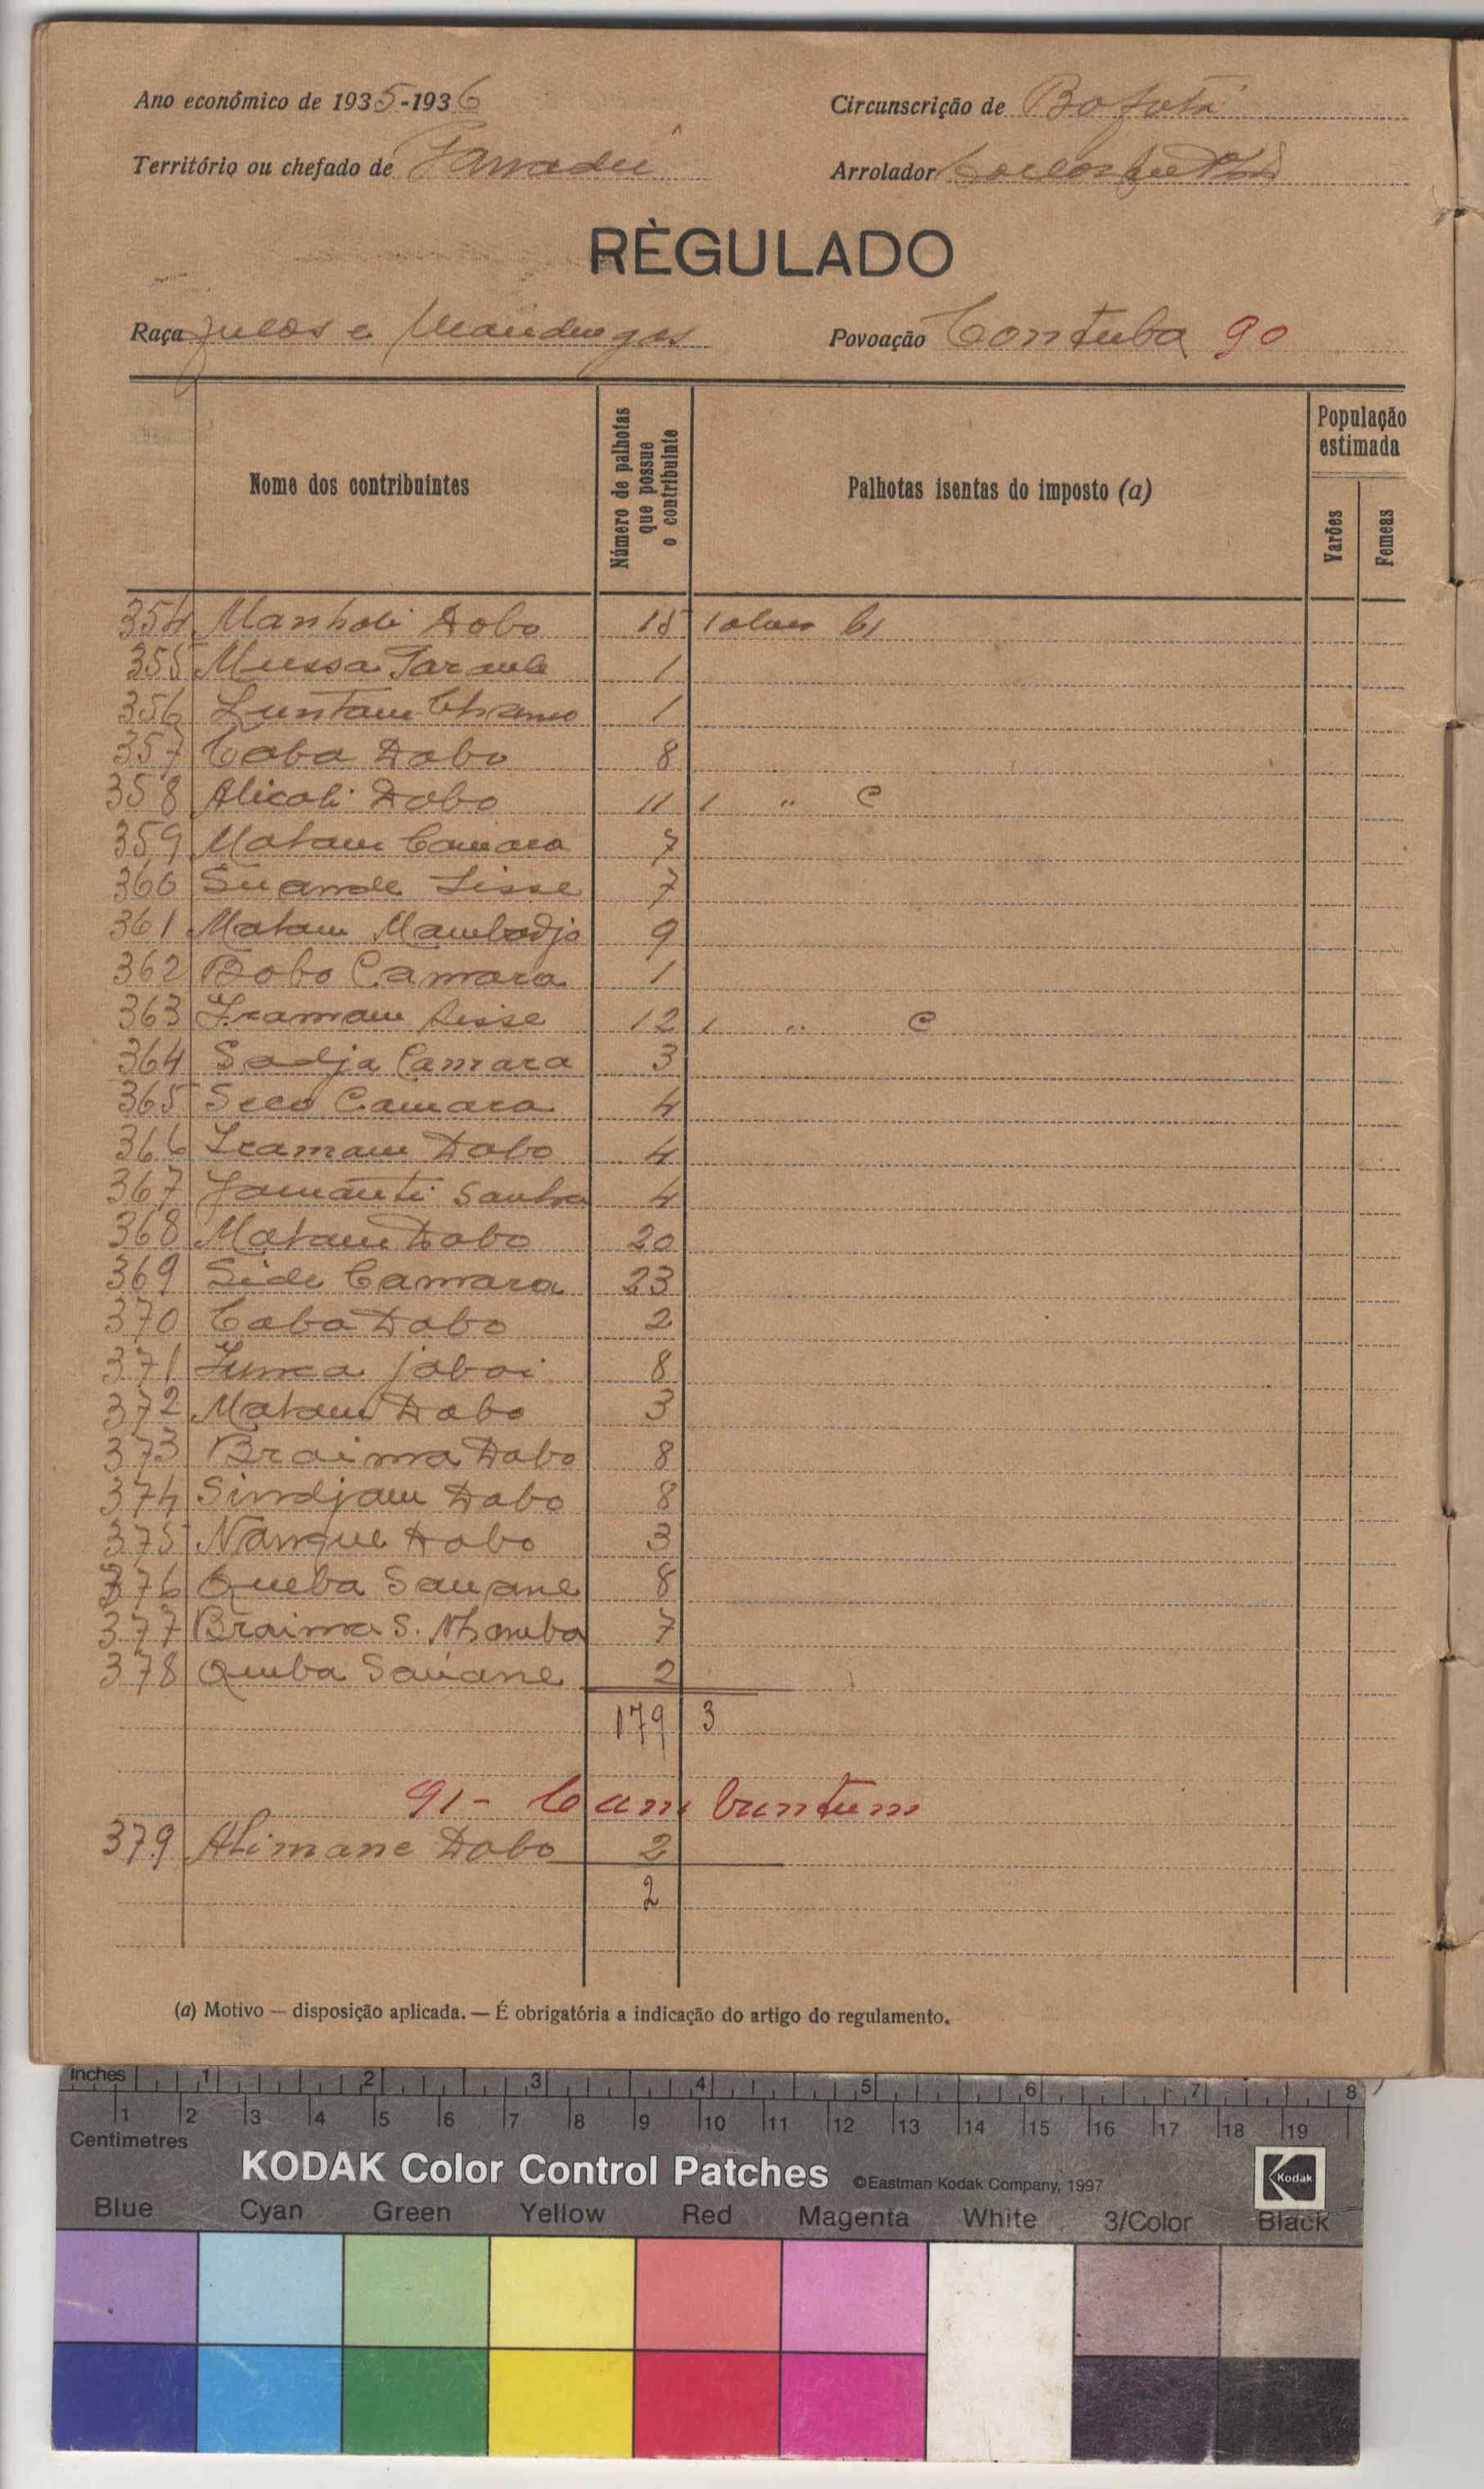 Ano económico de 1935-1936
Circunscrição de Bafatá
Território ou chefado de
Arrolador
RÈGULADO
Raça Fulas e Mandingas
Povoação Contuba 90
Nome dos contribuintes
Número de palhotas que possue o contribuinte
Palhotas isentas do imposto (a)
População estimada
Varões
Femeas
354 Manhali Dabo 15 1 b)
355 Mussa 1
356 1
357 Caba Dabo 8
358 Alicali Dabo 11 1 " C
359 Malam Camara 7
360 Suande Sisse 7
361 Malam Mambadjo 9
362 Bobo Camara 1
363 Iramam Sisse 12 1 " C
364 Sadja Camara 3
365 Seco Camara 4
366 Iramam Dabo 4
367 4
368 Malam Dabo 20
369 Side Camara 23
370 Caba Dabo 2
371 Junca jabai 8
372 Malam Dabo 3
373 Braima Dabo 8
374 Sindjam Dabo 8
375 Nanque Dabo 3
376 Queba Sauane 8
377 Braima S. 7
378 Queba Sauane 2
179 3
91 - Cam buntum
379 Alimane Dabo 2
2
(a) Motivo — disposição aplicada. — É obrigatória a indicação do artigo do regulamento.
inches 1 2 3 4 5 6 7 8
1 2 3 4 5 6 7 8 9 10 11 12 13 14 15 16 17 18 19
Centimetres
KODAK Color Control Patches ©Eastman Kodak Company, 1997 Kodak
Blue Cyan Green Yellow Red Magenta White 3/Color Black